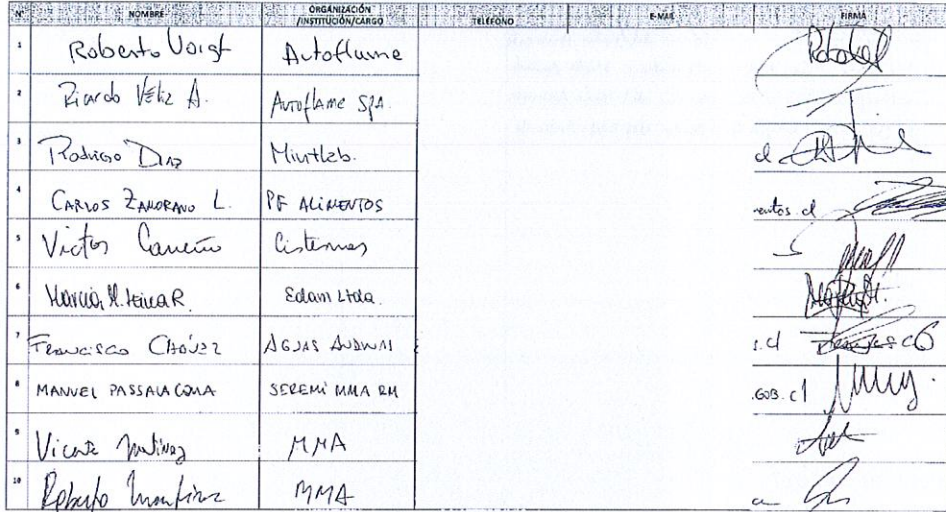 Nº NOMBRE ORGANIZACIÓN /INSTITUCIÓN/CARGO TELÉFONO E-MAIL FIRMA
1 Roberto Voigt Autoflame
2 Ricardo Véliz A. Autoflame SPA.
3 Rodrigo Diaz cl
4 CARLOS ZAMORANO L. PF ALIMENTOS mentos.cl
5 Victor Cisternas
6 Edam Ltda
7 Francisco CHÁVEZ AGUAS ANDINAS s.cl
8 MANUEL PASSALACQUA SEREMI MMA RM .GOB.cl
9 Vicente Martinez MMA
10 Roberto MMA